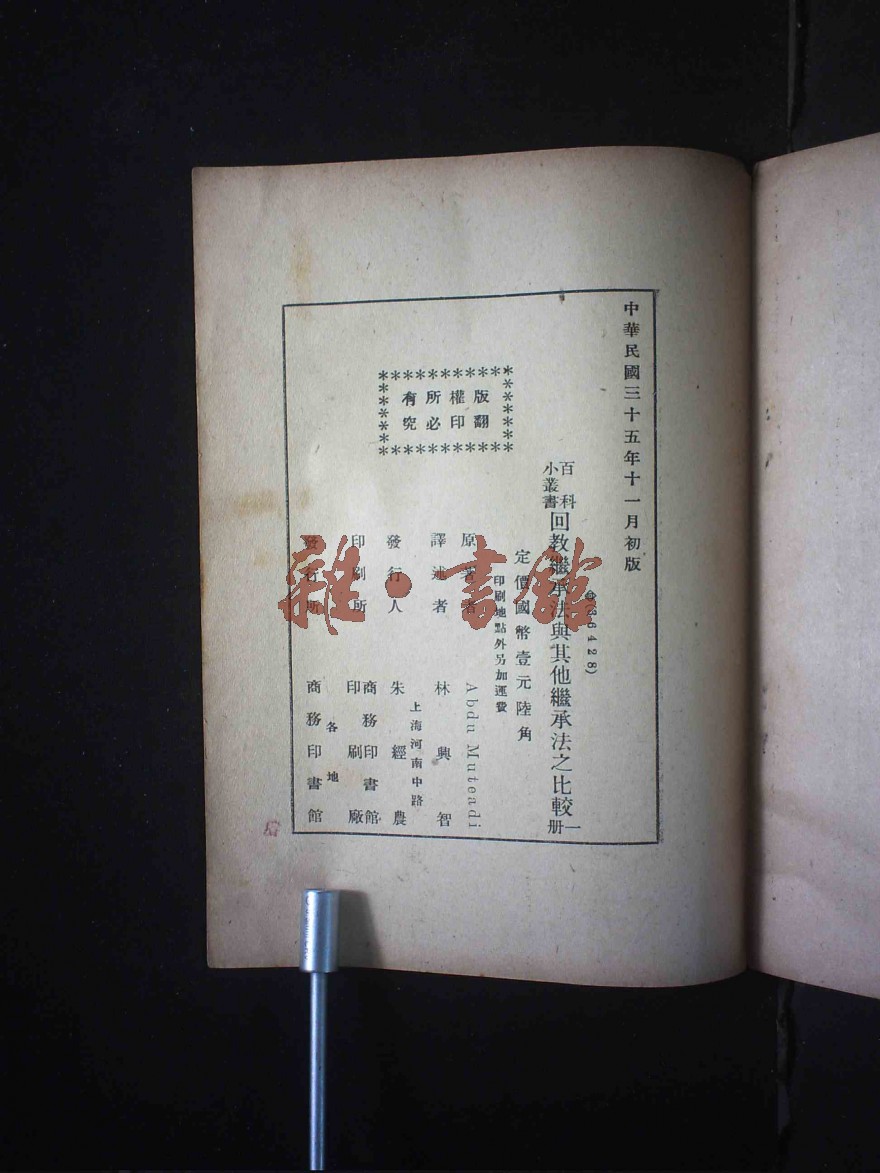 中華民國三十五年十一月初版
百科
小叢書
回教繼承法與其他繼承法之比較
一册
定價國幣壹元陸角
印刷地點外另加運費
版權所有
翻印必究
原著者 Abdu Muteadi
譯述者 林興智
上海河南中路
發行人 朱經農
印刷所 商務印書館
印刷廠
各地
發行所 商務印書館
雜·書館